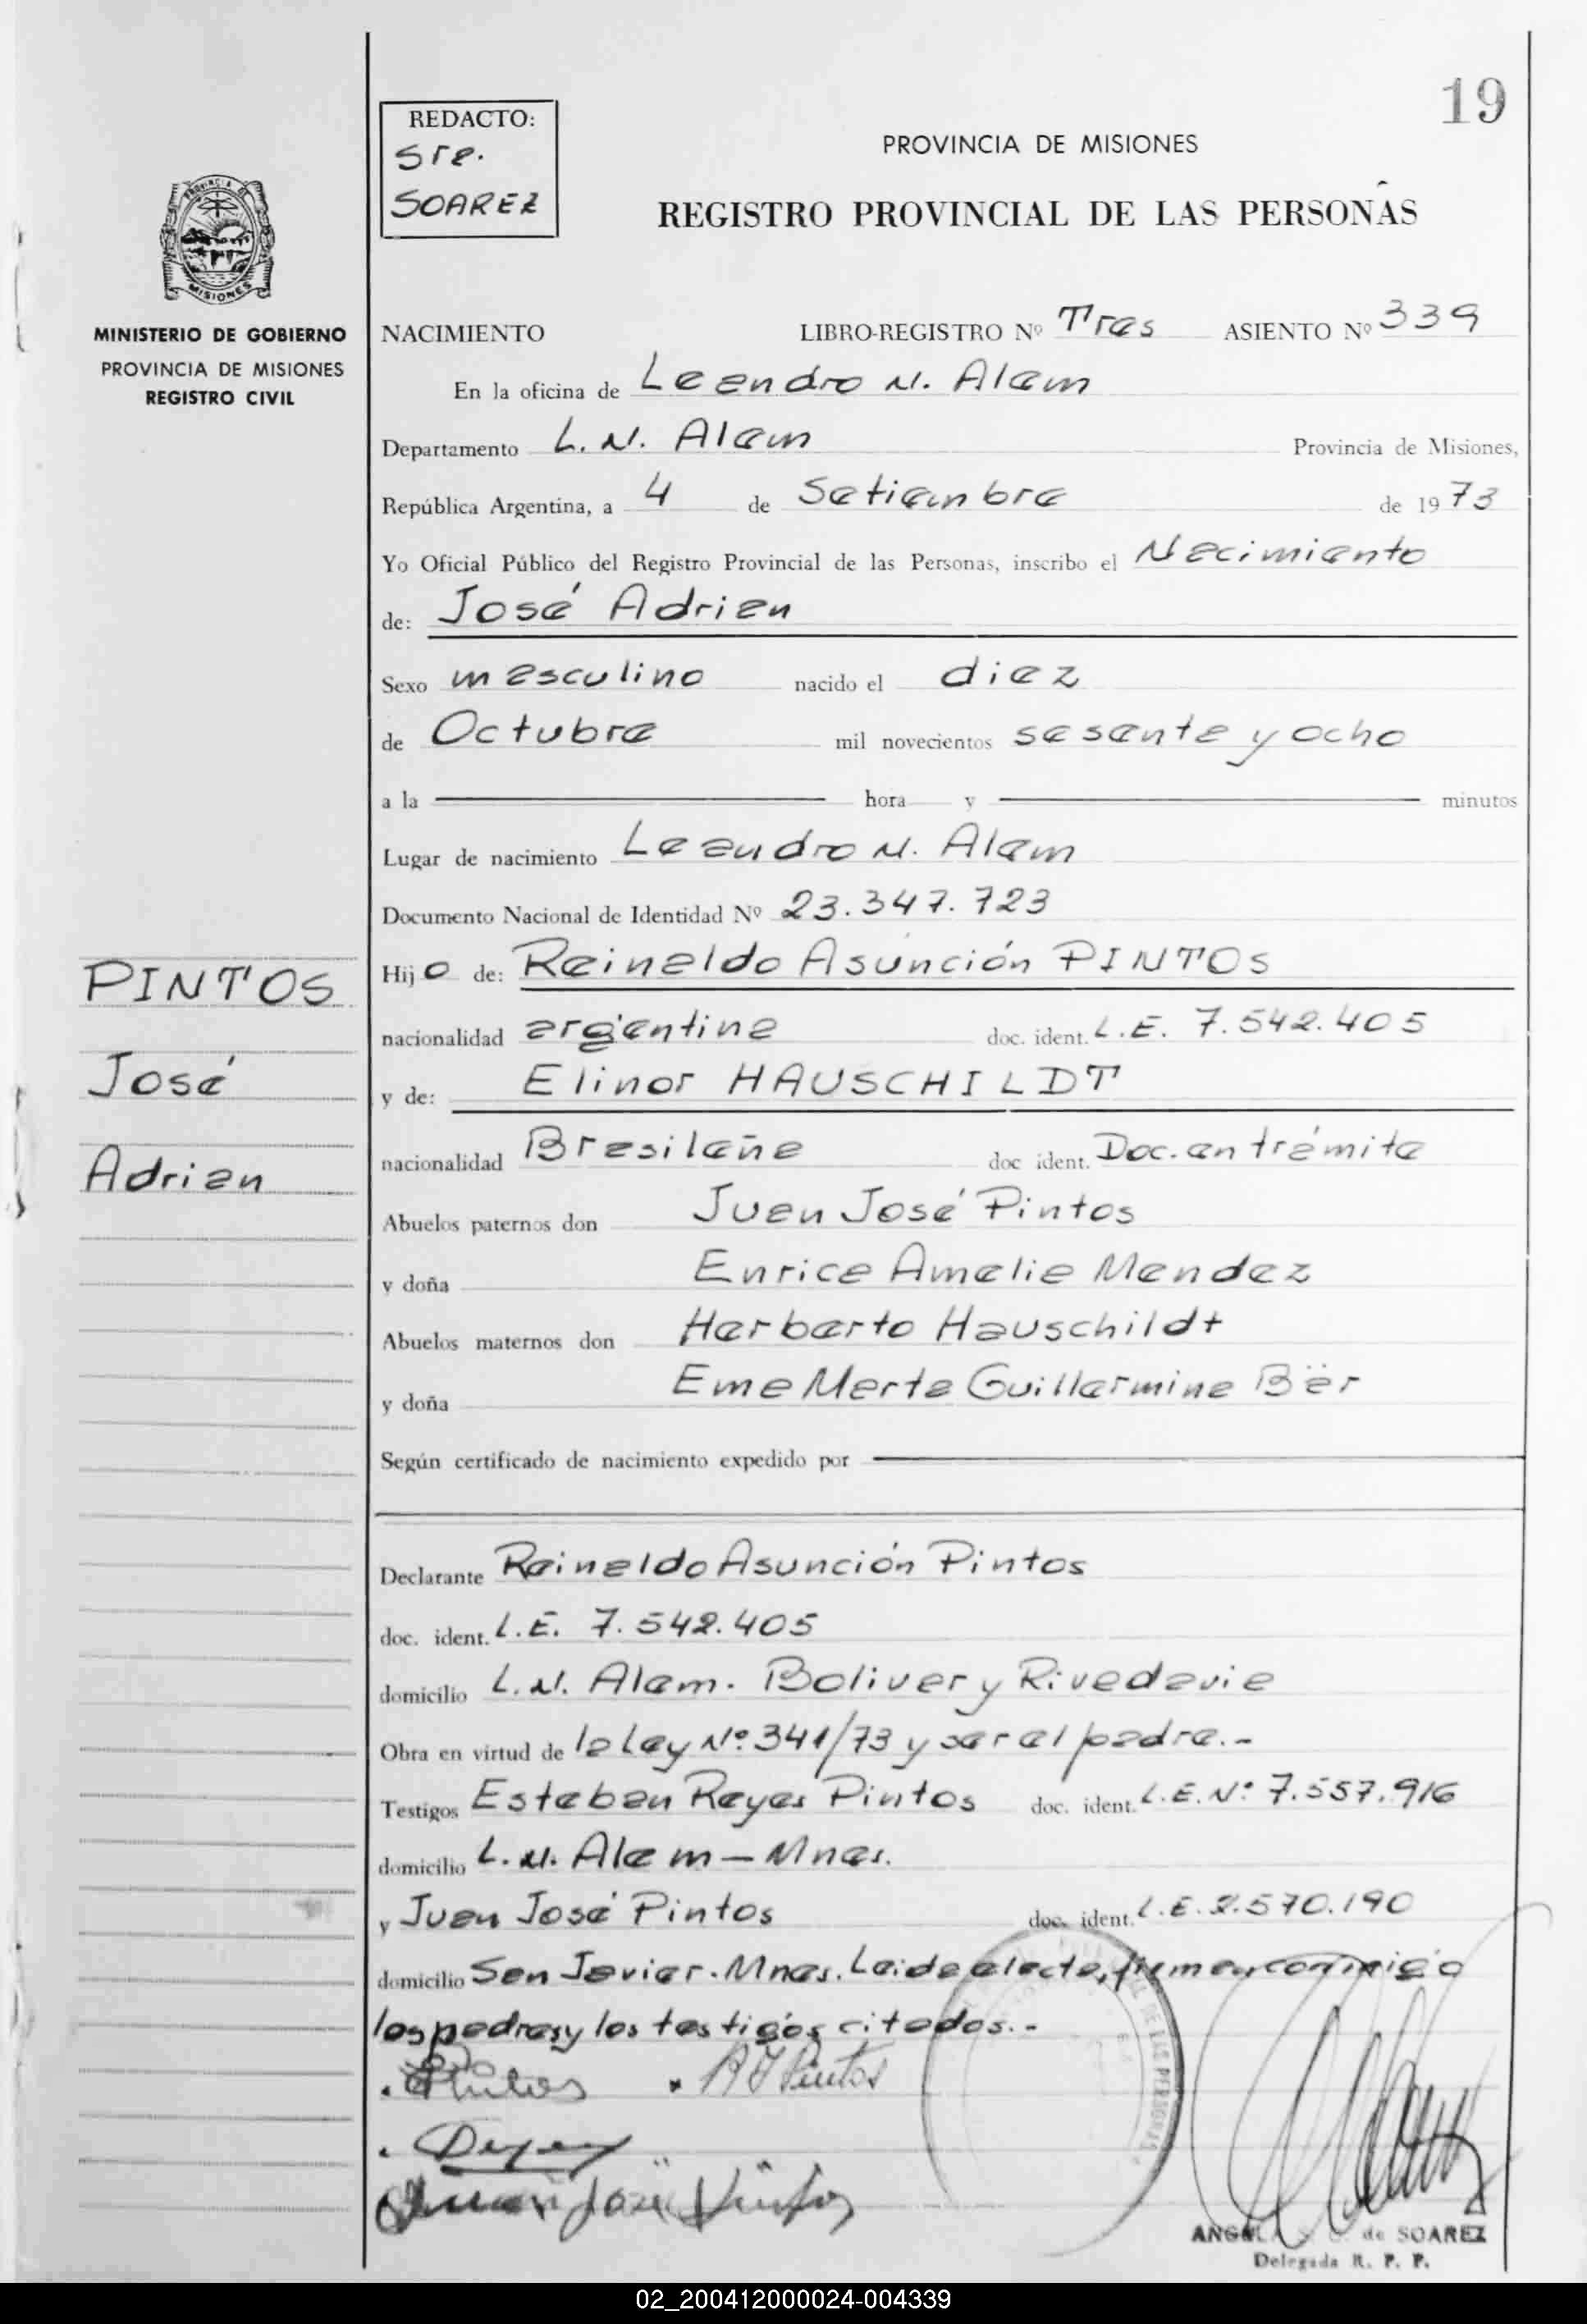 19
REDACTO:
Sra.
SOAREZ
PROVINCIA DE MISIONES
REGISTRO PROVINCIAL DE LAS PERSONAS
PROVINCIA DE
MISIONES
MINISTERIO DE GOBIERNO
PROVINCIA DE MISIONES
REGISTRO CIVIL
NACIMIENTO LIBRO-REGISTRO Nº Tres ASIENTO Nº 339
En la oficina de Leandro N. Alem
Departamento L. N. Alem Provincia de Misiones,
República Argentina, a 4 de Setiembre de 1973
Yo Oficial Público del Registro Provincial de las Personas, inscribo el Nacimiento
de: José Adrian
Sexo masculino nacido el diez
de Octubre mil novecientos sesenta y ocho
a la hora y minutos
Lugar de nacimiento Leandro N. Alem
Documento Nacional de Identidad Nº 23.347.723
Hijo de: Reinaldo Asunción PINTOS
nacionalidad argentina doc. ident. L.E. 7.542.405
y de: Elinor HAUSCHILDT
nacionalidad Brasileña doc ident. Doc. en trámite
Abuelos paternos don Juan José Pintos
y doña Enrica Amelia Mendez
Abuelos maternos don Herberto Hauschildt
y doña Ema Marta Guillermina Bär
Según certificado de nacimiento expedido por
PINTOS
José
Adrian
Declarante Reinaldo Asunción Pintos
doc. ident. L.E. 7.542.405
domicilio L.N. Alem. Bolivar y Rivadavia
Obra en virtud de la Ley Nº 341/73 y ser el padre.-
Testigos Esteban Reyes Pintos doc. ident. L.E. Nº 7.557.916
domicilio L.N. Alem - Mnes.
y Juan José Pintos doc. ident. L.E. 2.570.190
domicilio San Javier. Mnes. Leida el acta, firman conmigo
los padres y los testigos citados.-
Pintos
Juan José Pintos
de SOAREZ
Delegada R. P. P.
02_200412000024-004339